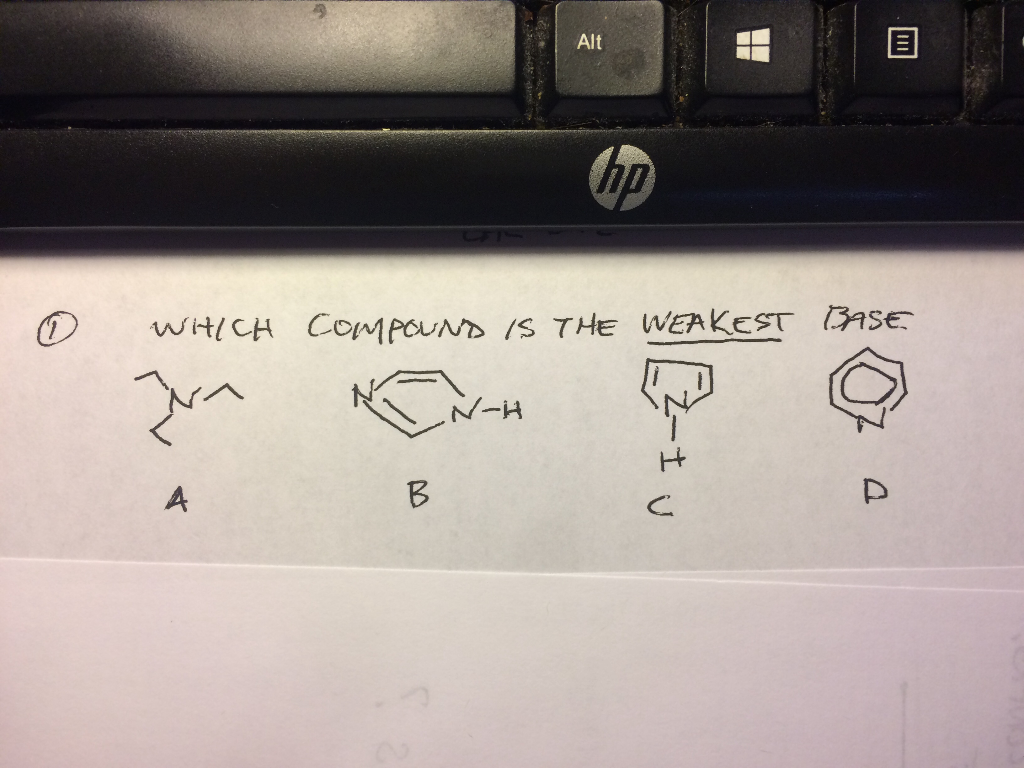 Alt
hp
① WHICH COMPOUND IS THE WEAKEST BASE
N N N-H N H N
A B C D